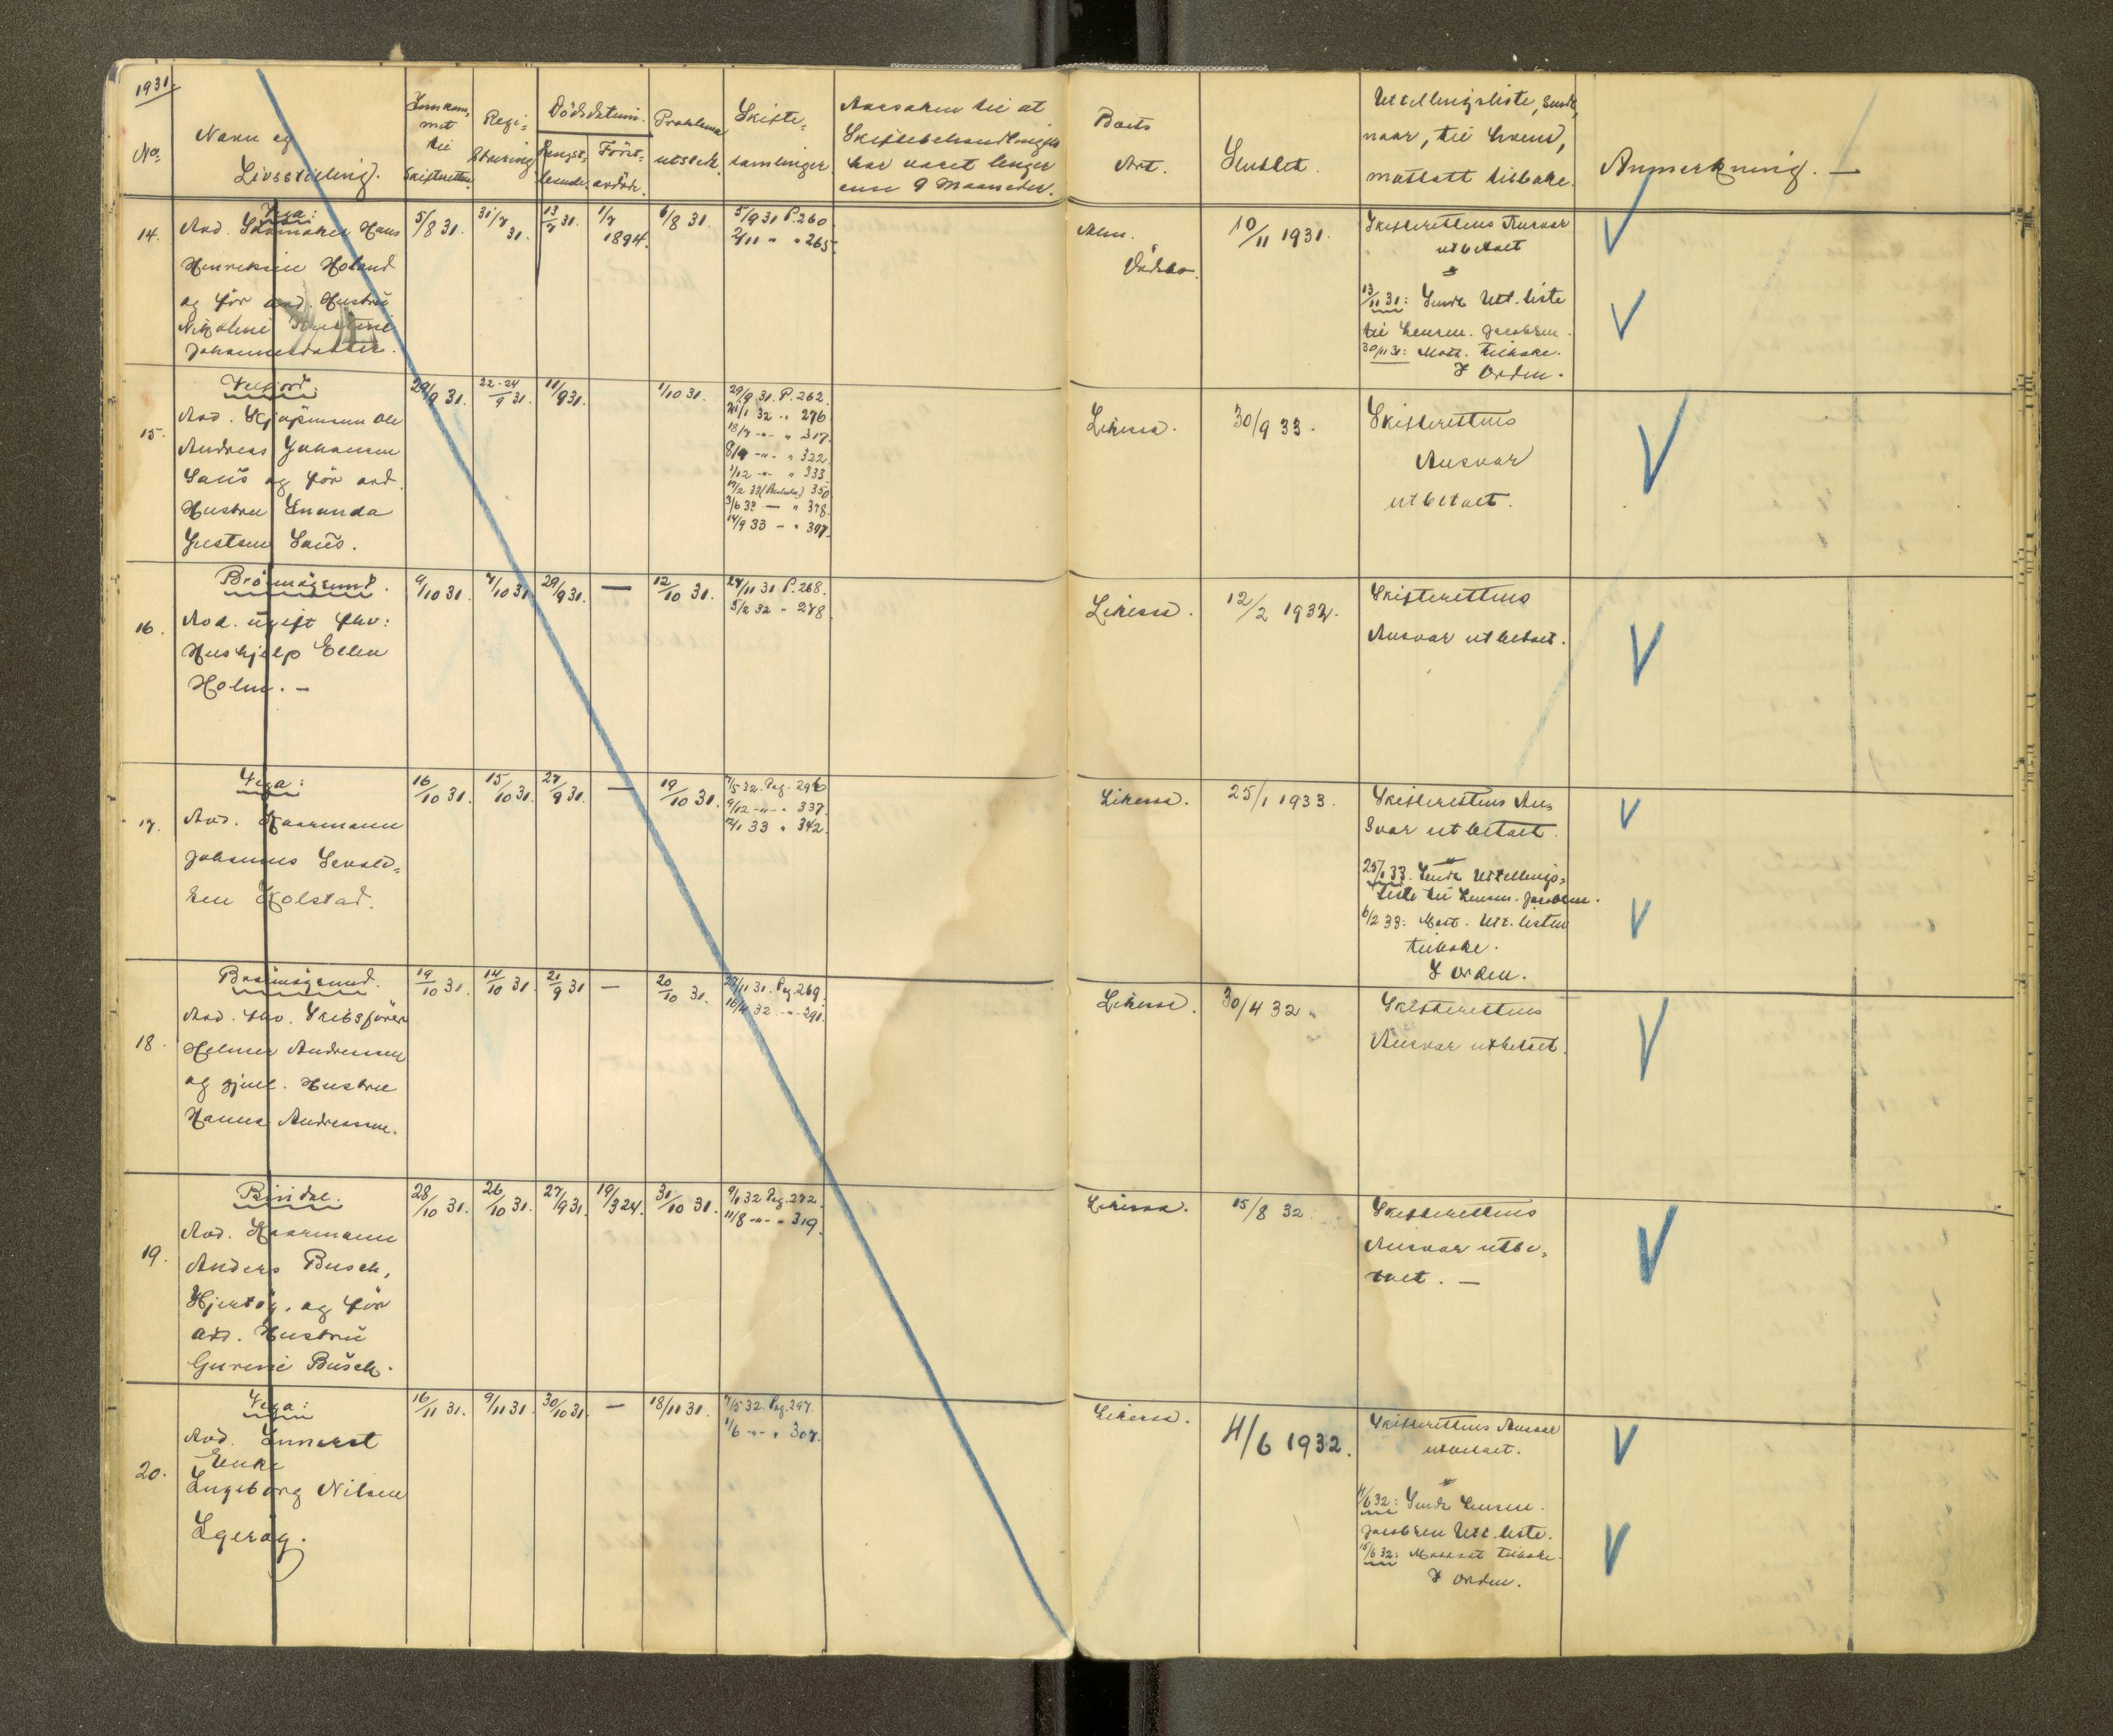 1931.
No.
Navn og
Livsstilling.
Innkom,
met
til
Skifteretten.
Regi-
strering
Dödsdatum.
Lengst-
levende
Först-
avdöde.
Proklama
utstedt.
Skifte-
samlinger
Aarsaken til at
Skiftebehandlingen
har varet lenger
enn 9 Maaneder.
Boets
Art.
Sluttet.
Utlodningsliste, sendt,
naar, til hvem,
mottatt tilbake.
Anmerkning. —
14.
Vega:
Avd. Hans
Henriksen Holand
og för avd. Hustru
Nikoline
Johannesdatter.
5/8 31.
31/7 31.
13/7 31.
1/7 1894.
6/8 31.
5/9 31 P. 260
2/11 " " 265
Alm.
Dödsbo.
10/11 1931.
Skifterettens Ansvar
utbetalt
"
13/11 31: Sendt Utl. liste
til Lensm. Jacobsen.
30/11 31: Mott. tilbake.
I Orden.
15.
Velfjord.
Avd. Kjöpmann Ole
Andreas Johansen
Saus og för avd.
Hustru
Justsen Saus.
29/9 31.
22-24/9 31.
11/9 31.
1/10 31.
29/9 31. P. 262.
21/1 32 " 276
18/7 -"- " 317.
8/9 -"- " 322.
1/12 -"- " 333.
350
3/6 33 — " 378.
14/9 33 - " 397.
30/9 33.
Skifterettens
Ansvar
utbetalt.
16.
Brönnöysund.
Avd. ugift fhv:
Hushjelp Ellen
Holm. -
9/10 31.
7/10 31.
29/9 31.
—
12/10 31.
27/11 31 P. 268.
5/2 32 - 278
12/2 1932.
Skifterettens
Ansvar utbetalt.
17.
Vega:
Avd. Kaarmann
Johannes Sevald-
sen Kolstad.
16/10 31.
15/10 31.
27/9 31.
—
19/10 31.
7/5 32. Pag. 296
9/12 -"- " 337.
12/1 33 " 342.
25/1 1933.
Skifterettens An-
svar utbetalt.
"
25/1 33. Sendt Utlodnings-
liste til Lensm. Jacobsen.
6/2 33: Mott. Utl. listen
tilbake.
I Orden.
18.
Brönnöysund.
Avd. fhv. Skibsförer
Helmer Andreassen
og gjenl. Hustru
Hanna Andreassen.
19/10 31.
14/10 31.
21/9 31
—
20/10 31.
27/11 31. Pag. 269.
16/4 32. -"- 291.
30/4 32.
Skifterettens
Ansvar utbetalt.
19.
Bindal.
Avd. Kaarmann
Anders Busch,
og för
avd. Hustru
Gurine Busch.
28/10 31.
26/10 31.
27/9 31.
19/3 24.
31/10 31.
9/1 32 Pag. 272.
11/8 -"- " 319.
15/8 32.
Skifterettens
Ansvar utbe-
talt. —
20.
Vega:
Avd.
Enke
Ingeborg Nilsen
Igeröy.
16/11 31.
9/11 31.
30/10 31.
—
18/11 31.
7/5 32. Pag. 297.
1/6 -"- " 307.
4/6 1932.
Skifterettens Ansvar
utbetalt.
"
4/6 32: Sendt Lensm.
Jacobsen Utl. liste.
15/6 32: Mottatt tilbake.
I Orden.